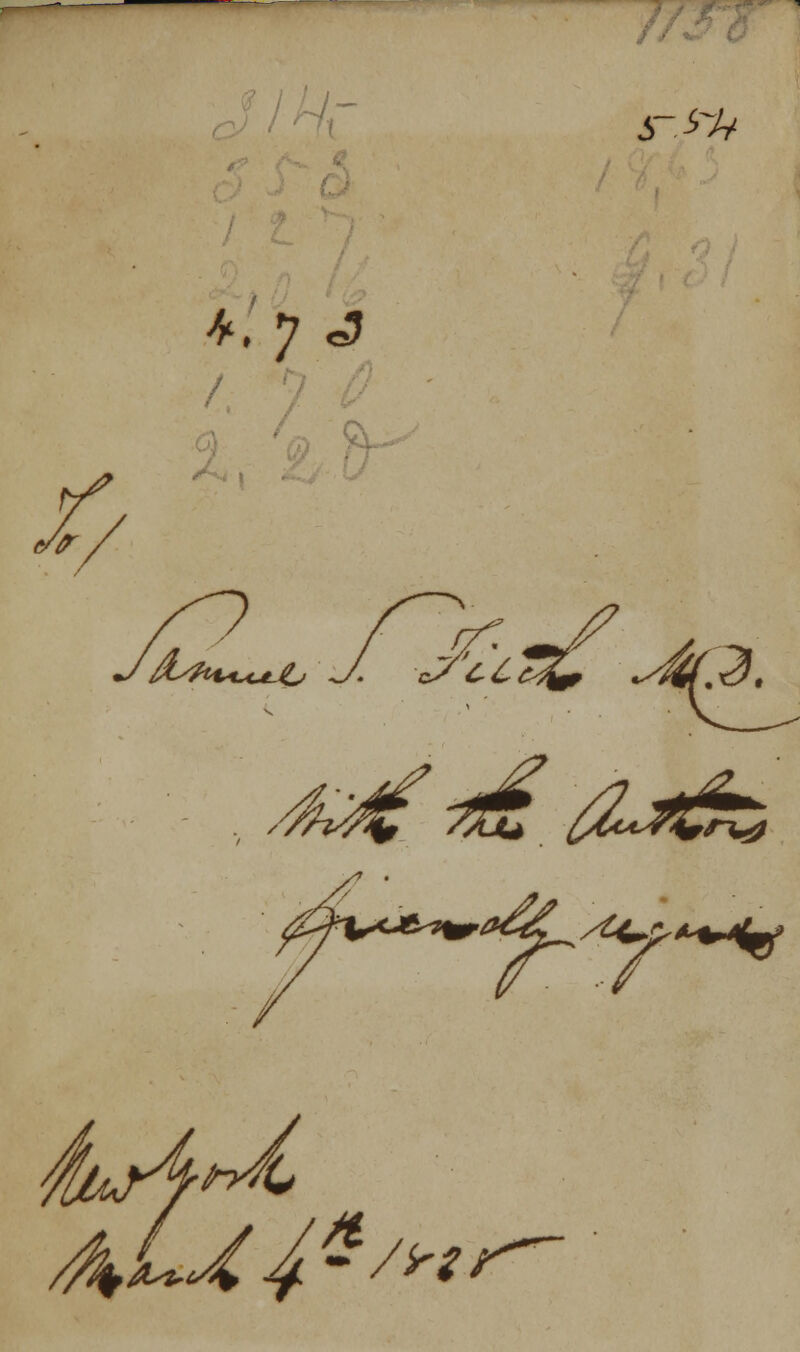 1158
314
5.54
353
18,63
127
9.31
2,06
4.73
1.70
2,20
To/
Samuel S. Fitch M.D.
With the Authors
friendly regards
New York
March 4th 1828